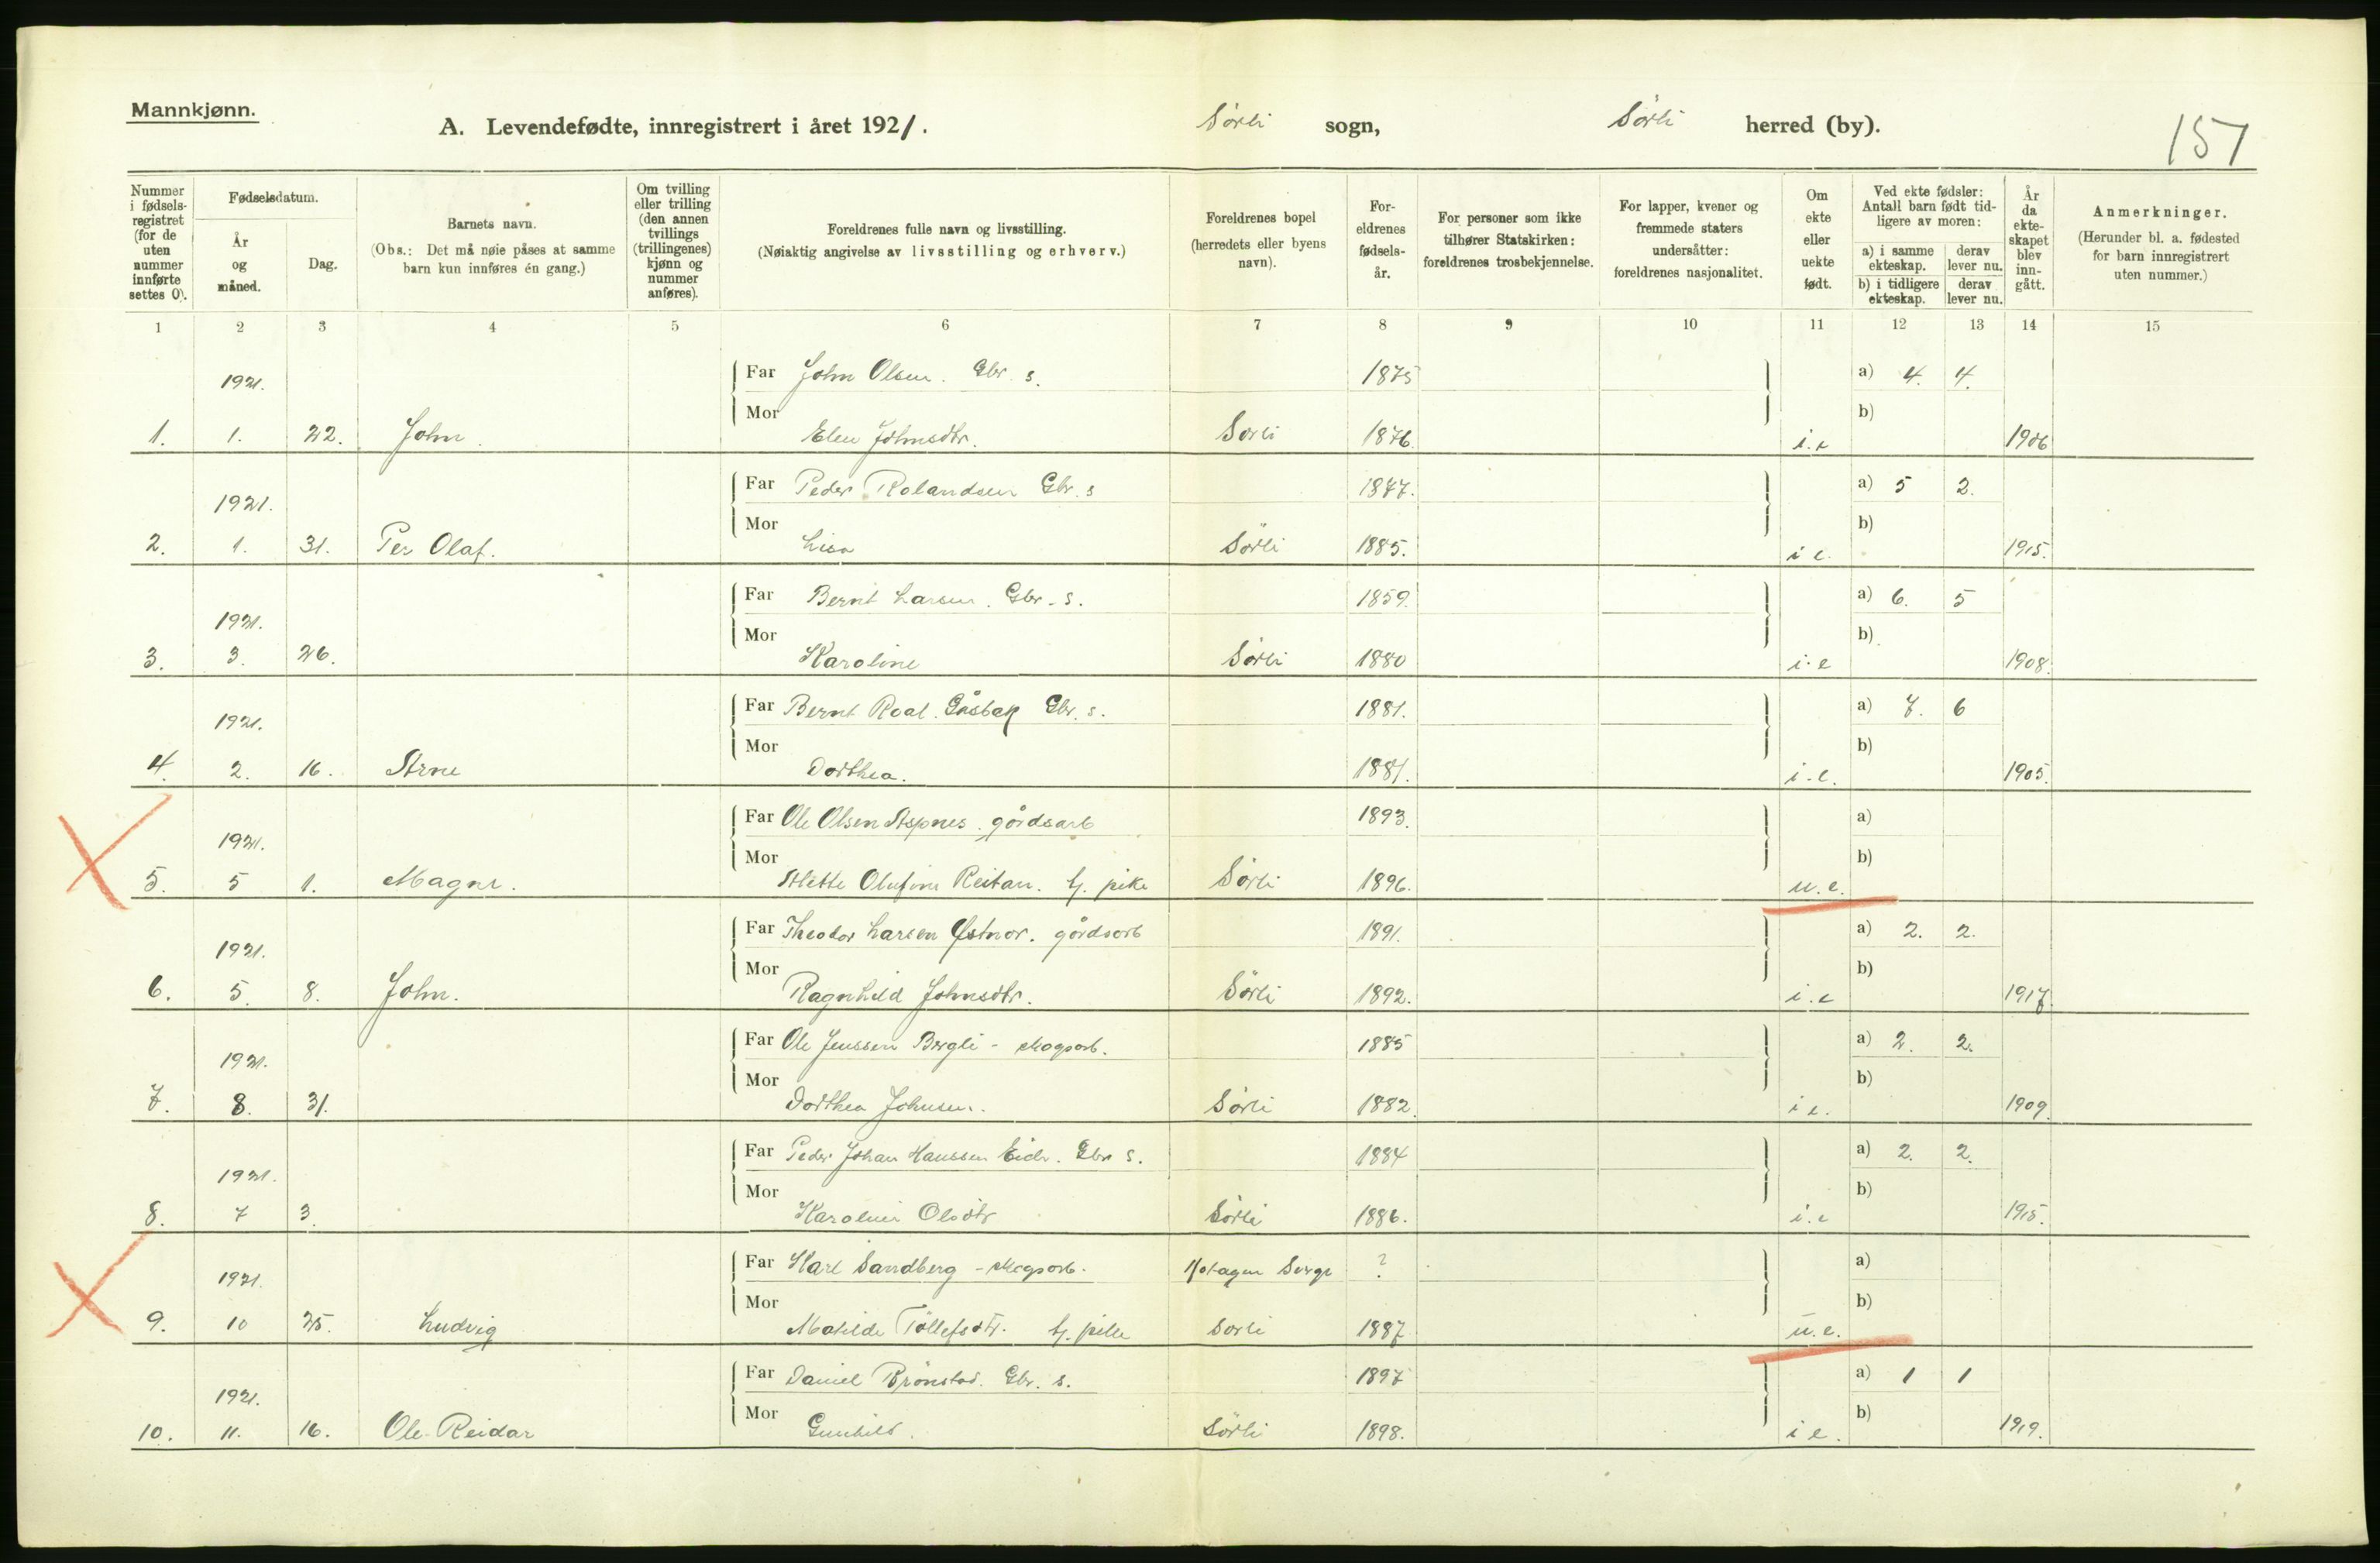 Mannkjønn.
A. Levendefødte, innregistrert i året 1921. Sørli sogn, Sørli herred (by). 151
Nummer i fødsels-registret (for de uten nummer innførte settes 0).
Fødselsdatum.
År og måned.
Dag.
Barnets navn.
(Obs.: Det må nøie påses at samme barn kun innføres én gang.)
Om tvilling eller trilling (den annen tvillings (trillingenes) kjønn og nummer anføres).
Foreldrenes fulle navn og livsstilling.
(Nøiaktig angivelse av livsstilling og erhverv.)
Foreldrenes bopel (herredets eller byens navn).
For-eldrenes fødsels-år.
For personer som ikke tilhører Statskirken: foreldrenes trosbekjennelse.
For lapper, kvener og fremmede staters undersåtter: foreldrenes nasjonalitet.
Om ekte eller uekte født.
Ved ekte fødsler: Antall barn født tid-ligere av moren:
a) i samme ekteskap. derav lever nu.
b) i tidligere ekteskap. derav lever nu.
År da ekte-skapet blev inn-gått.
Anmerkninger.
(Herunder bl. a. fødested for barn innregistrert uten nummer.)
1 2 3 4 5 6 7 8 9 10 11 12 13 14 15
1921. Far John Olsen. Gbr. s. 1875 a) 4. 4.
Mor b)
1. 1. 22. John. Elen Johnsdtr. Sørli 1876. i.e 1906
1921. Far Peder Rolandsen Gbr. s 1877. a) 5 2.
Mor b)
2. 1. 31. Per Olaf. Lisa Sørli 1885. i e. 1915.
1921. Far Bernt Larsen. Gbr. s. 1859. a) 6. 5
Mor b)
3. 3. 26. Karoline Sørli 1880 i.e 1908.
1921. Far Bernt Roal. Gåsbak Gbr. s. 1881. a) 7. 6
Mor b)
4. 2. 16. Arne Dorthea. 1881. i.e. 1905.
1921. Far Ole Olsen Aspnes. gårdsarb 1893. a)
Mor b)
5. 5 1. Magne. Olufine Reitan. tj. pike Sørli 1896. u.e.
1921. Far Theodor Larsen Østnor. gårdsarb 1891. a) 2. 2.
Mor b)
6. 5. 8. John. Ragnhild Johnsdtr. Sørli 1892. i.e 1917.
1921. Far Ole Jenssen Bergli - skogsarb. 1885 a) 2. 2.
Mor b)
7. 8. 31. Dorthea Johnsen. Sørli 1882. i e. 1909.
1921. Far Peder Johan Hanssen Eide. Gbr s. 1884 a) 2. 2.
Mor b)
8. 7 3. Karoline Olsdtr Sørli 1886. i.e 1915.
1921. Far Karl Sandberg - skogsarb. ? a)
Mor b)
9. 10 25. Ludvig Matilde Tollefsdtr. tj. pike Sørli 1887 u.e.
1921. Far Daniel Brønstad. Gbr. s. 1897 a) 1 1
Mor b)
10. 11. 16. Ole Reidar Gunhild. Sørli 1898. i e. 1919.